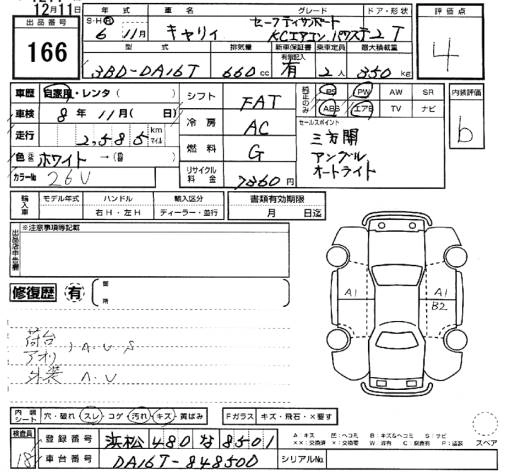 12月11日
出品番号
166
年式 車名 グレード ドア・形状
S・H・R 6年 11月 キャリィ セーフティサポート
KCエアコン パワステ 2 T
型式 排気量 新車保証書 乗車定員 最大積載量
有 記録簿記入
3BD-DA16T 660cc 有 2人 350kg
評価点
4
車歴 自家用・レンタ( )
車検 8年 11月( 日)
走行 2,585 km マイル
色 ホワイト →( )
カラーNo 26V
シフト FAT
冷房 AC
燃料 G
リサイクル料金 7860円
純正のみ PS PW AW SR
ABS エアB TV ナビ
内装評価
b
セールスポイント
三方開
アングル
オートライト
輸入車 モデル年式 ハンドル 輸入区分
右H・左H ディーラー・並行
書類有効期限
月 日迄
出品店申告書
※注意事項等記載
修復歴 有 ( 箇所 )
荷台
アオリ , A.U.S
外装 A.U
A1
A1
B2
内装シート 穴・破れ スレ コゲ 汚れ キズ 黄ばみ
Fガラス キズ・飛石・X要す
スペア
検査員 18
登録番号 浜松 480 な 8501
車台番号 DA16T-848500
シリアルNo.